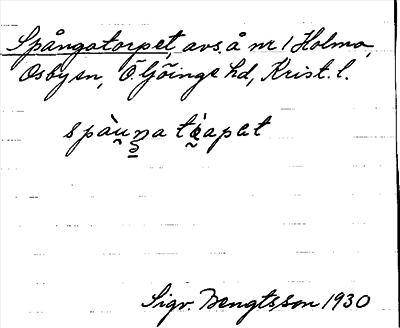 Spångatorpet, avs. å nr 1 Holma,
Osby sn, Ö. Göinge hd, Krist. l.
Sigv. Bengtsson 1930